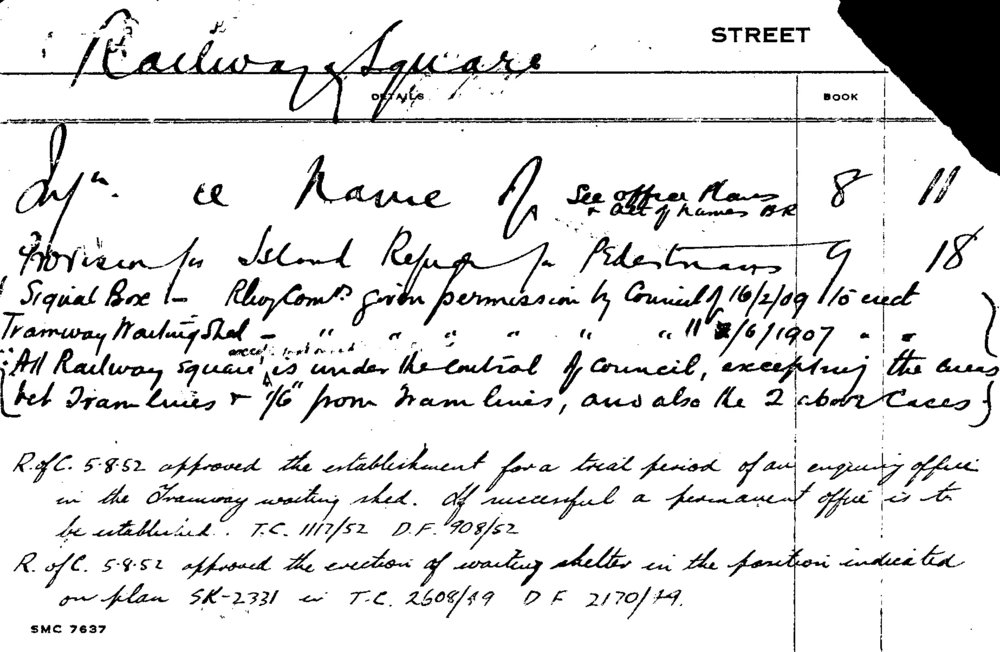 Railway Square STREET
DETAILS BOOK
Infn. re Name of See office Plans 8 11
+ Act of Names BR
Provision for Island Refuge for Pedestrians 9 18
Signal Box - Rlwy Comrs given permission by Council of 16/2/09 to erect
Tramway Waiting Shed - " " " " " " 11/6/1907 " "
All Railway Square is under the control of Council, excepting the areas
bet Tram lines & 1/6" from Tram lines, and also the 2 above Cases
R. of C. 5.8.52 approved the establishment for a trial period of an enquiry office
in the Tramway waiting shed. If successful a permanent office is to
be established. T.C. 1117/52 D.F. 908/52
R. of C. 5.8.52 approved the erection of waiting shelter in the position indicated
on plan SK-2331 in T.C. 2608/49 D F 2170/49.
SMC 7637